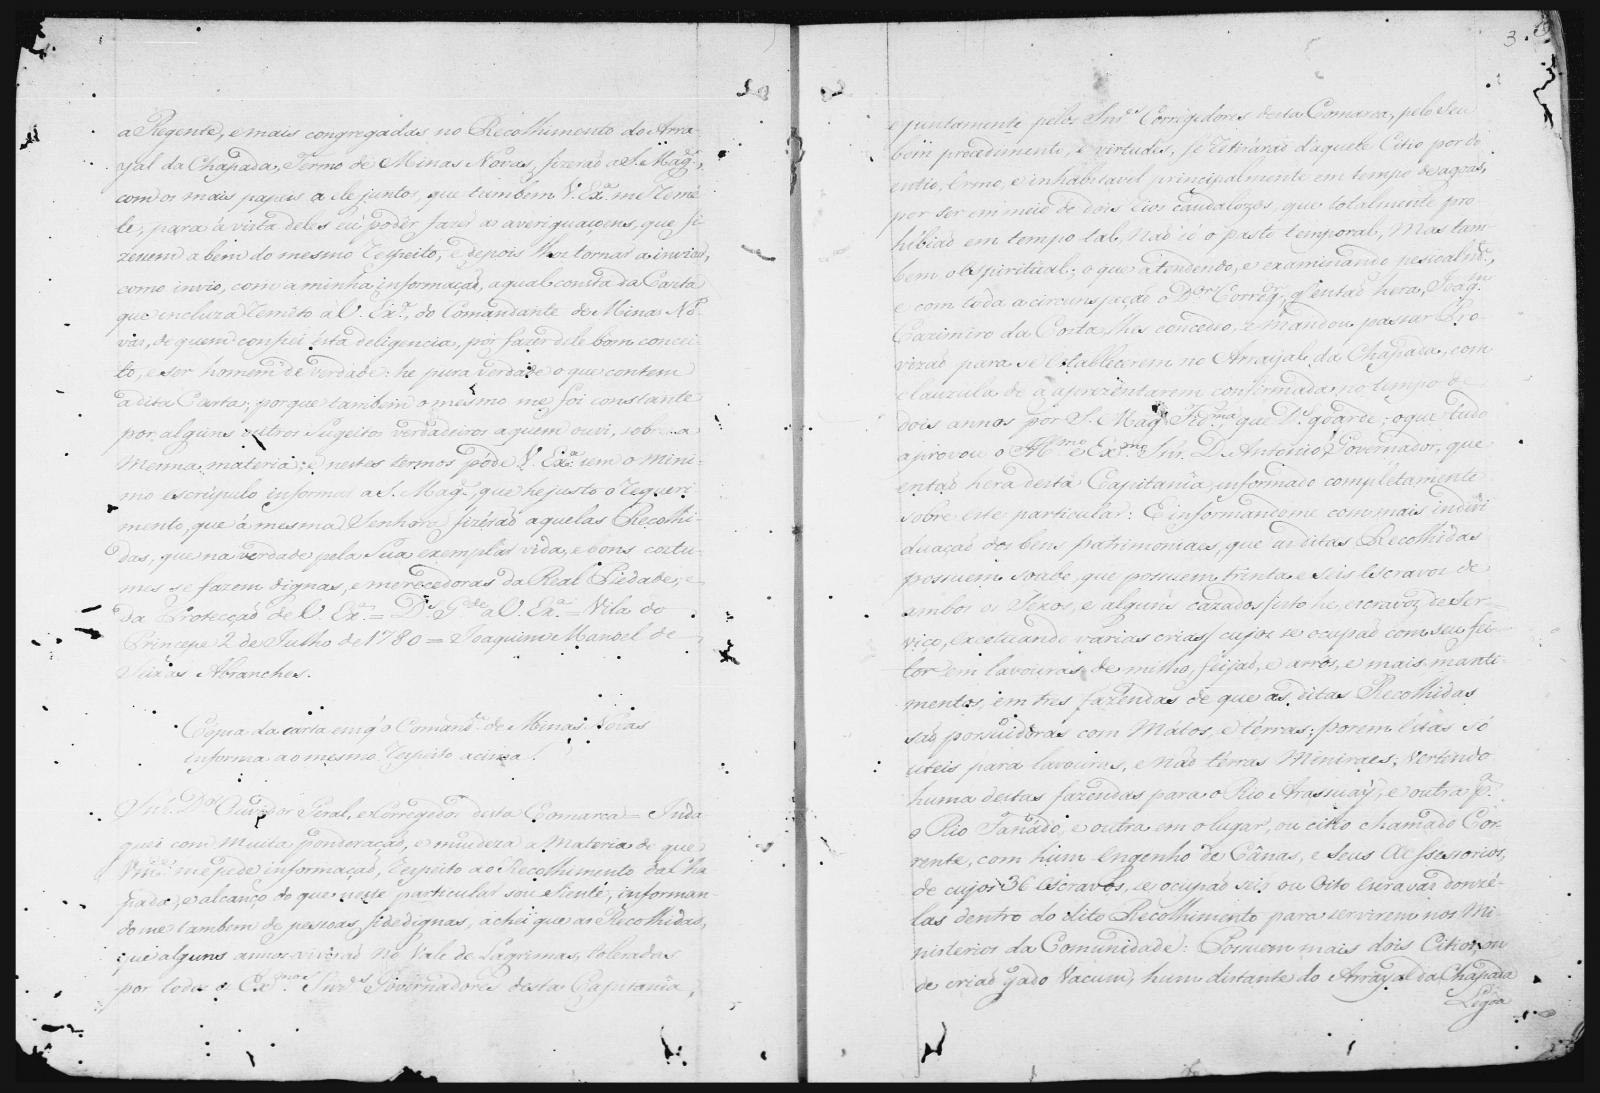 a Regente, e mais congregadas no Recolhimento do Arra-
yal da Chapada, Termo de Minas Novas, fizeraõ a S. Mag.e,
com os mais papeis a ele juntos, que tambem V. Ex.a me Reme-
te, para á vista deles eu poder fazer as averiguaçoens, que fi-
zessem a bem do mesmo Respeito, e depois lhos tornar a inviar,
como invio, com a minha informaçaõ, a qual consta da Carta
que incluza Remeto a V. Ex.a, do Comandante de Minas No-
vas, de quem confiei esta deligencia, por fazer dele bom concei-
to, e ser homem de verdade: he pura verdade o que contem
a dita Carta; porque tambem o mesmo me foi constante
por alguns outros Sugeitos verdadeiros a quem ouvi, sobre a
mesma materia: e nestes termos póde V. Ex.a sem o mini-
mo escrupulo informar a S. Mag.e, que he justo o Requeri-
mento, que á mesma Senhora fizéraõ aquelas Recolhi-
das, que na verdade pela Sua exemplar vida, e bons costu-
mes se fazem dignas, e merecedoras da Real Piedade, e
da Protecçaõ de V. Ex.a = D.s G.de a V. Ex.a = Vila do
Principe 2 de Julho de 1780 = Joaquim Manoel de
Seixas Abranches.
Copia da carta em q̃ o Comand.e de Minas Novas
informa ao mesmo Respeito acima.
Snr. D.or Ouvidor Geral, e Corregedor desta Comarca = Inda-
guei com muita ponderaçaõ, e miudeza a materia de que
Vm.ce me pede informaçaõ, Respeito ao Recolhimento da Cha-
pada, e alcanço do que neste particular sou Siente, informan-
do me tambem de pessoas fidedignas, achei que as Recolhidas,
que alguns annos viveraõ no Vale de Lagrimas, toleradas
por todos os Ex.mos Snr.es Governadores desta Capitania,
3
e juntamente pelos Snr.es Corregedores desta Comarca, pelo Seu
bom procedimento, e virtudes, se Retiráraõ d'aquele Citio por do-
entio, Ermo, e inhabitavel principalmente em tempo de agoas,
por ser em meio de dois Rios caudalozos, que totalmente pro-
hibiaõ em tempo tal, naõ só o pasto temporal, mas tam-
bem o Espiritual; o que atendendo, e examinando pesoalm.te,
e com toda a circunspeçaõ o D.or Correg.or q̃ entaõ hera, Joaq.m
Cazimiro da Costa, lhes concedeo, e mandou passar Pro-
vizaõ para se establecerem no Arrayal da Chapada, com
clauzula de a aprezentarem confirmada no tempo de
dois annos por S. Mag.e Fid.ma, que D.s guarde; o que tudo
aprovou o Ill.mo e Ex.mo Snr. D. Antonio, Governador, que
entaõ hera desta Capitania, informado complétamente
sobre este particular: E informandome com mais indivi-
duaçaõ dos bens patrimoniaes, que as ditas Recolhidas
possuem soube, que possuem trinta e seis Escravos de
ambos os Sexos, e alguns cazados/isto he, escravos de Ser-
viço, excetuando varias crias/ cujos se ocupaõ com seu fei-
tor em lavouras de milho, feijaõ, e arrós, e mais manti-
mentos, em tres fazendas de que as ditas Recolhidas
saõ possuidoras com Mátos, e térras; porem estas só
uteis para lavouras, e naõ térras Mineraes; vertendo
huma destas fazendas para o Rio Arassuay, e outra p.a
o Rio Fanádo, e outra em o lugar, ou citio chamado Cor-
rente, com hum Engenho de Cânas, e Seus Acessorios,
de cujos 36 escravos, se ocupaõ seis ou Oito Escravas donzé-
las dentro do dito Recolhimento para servirem nos Mi-
nisterios da Comunidade: Possuem mais dois Citios, ou
de criaõ gado Vacum, hum distante do Arrayal da Chapada
Legoa